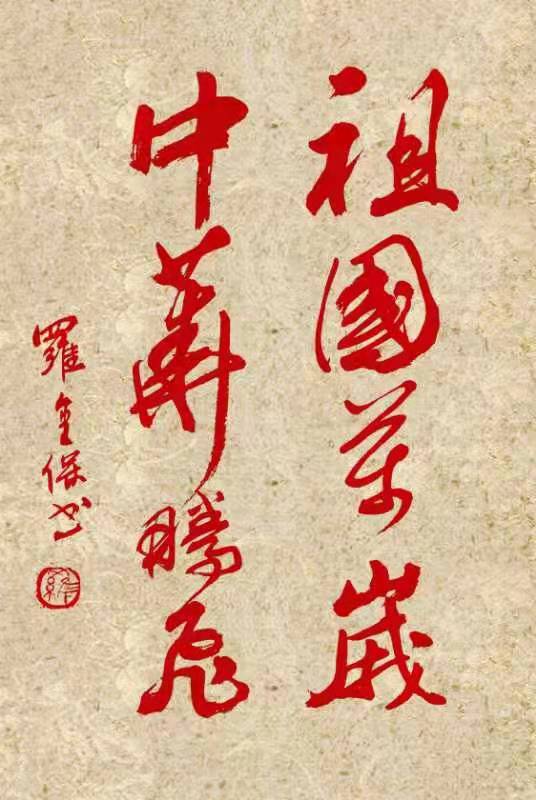 祖國萬歲
中華騰飛
羅金保书